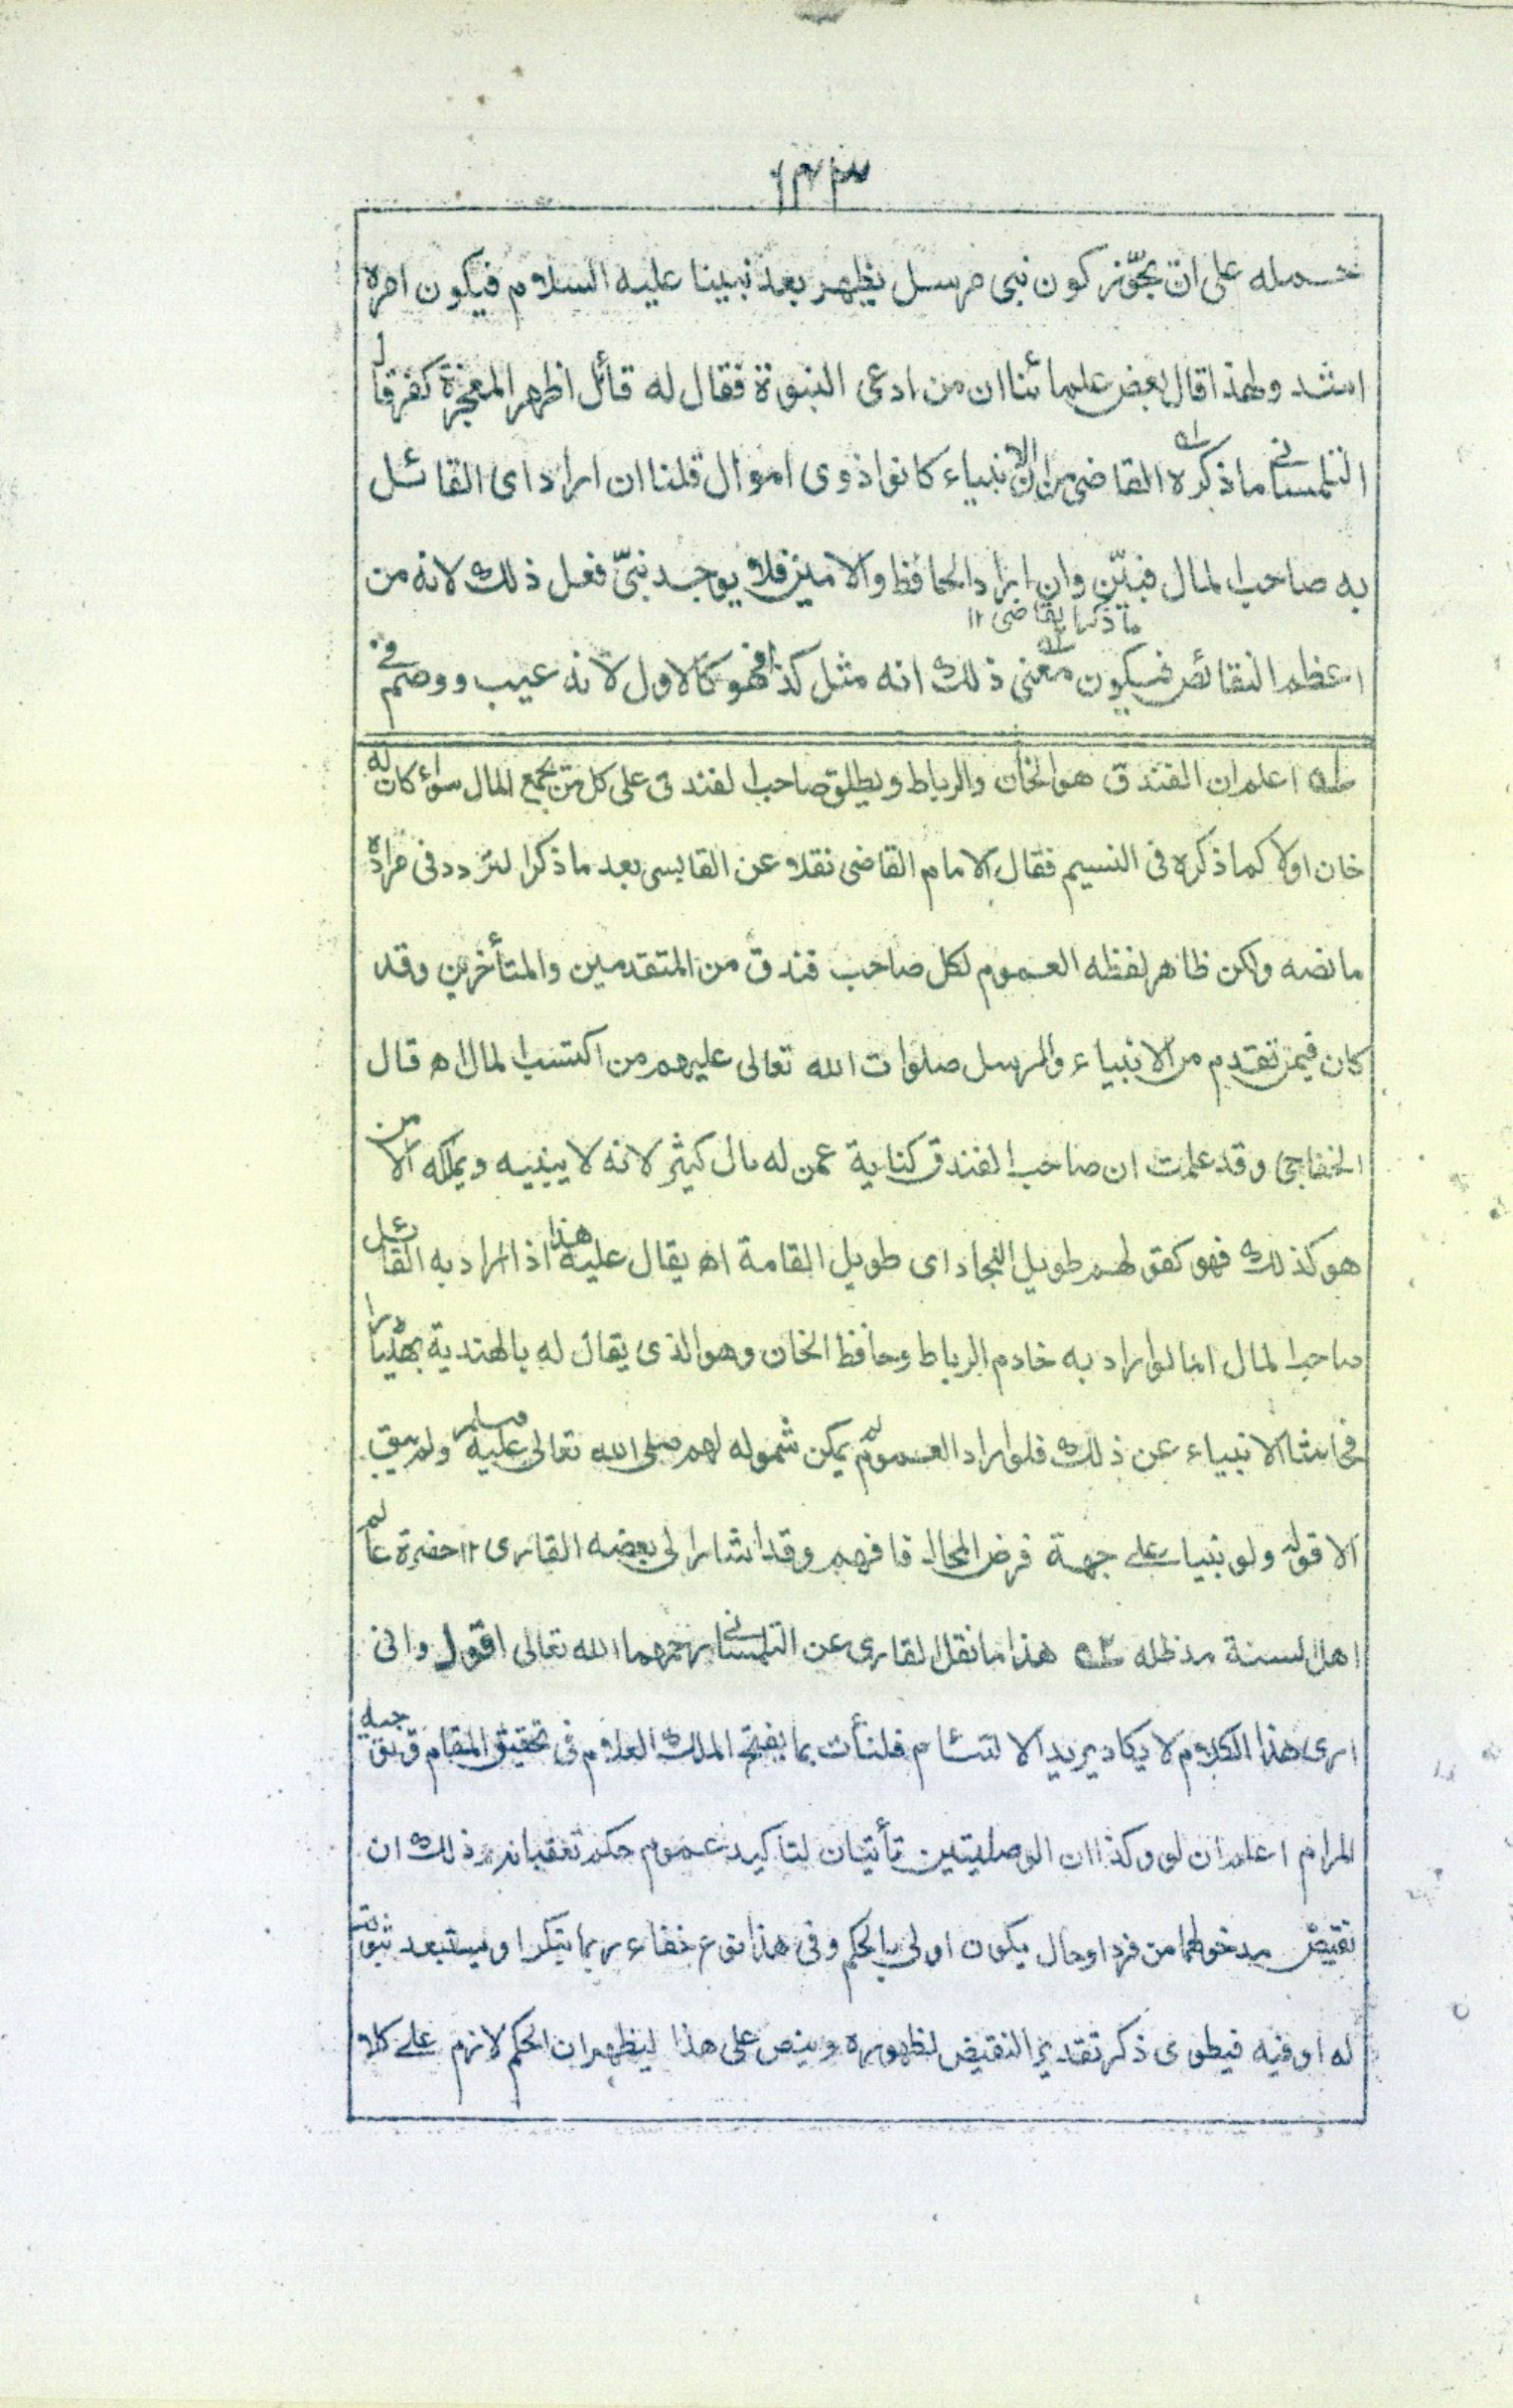 ۱۳۳
حمله على ان يجوّز كون نبى مرسل يظهر بعد نبينا عليه السلام فيكون امره
اشد ولهذا قال بعض علمائنا ان من ادعى النبوة فقال له قائل اظهر المعجزة كفر قال
التلمسانى ما ذكره القاضى من ان الانبياء كانوا ذوى اموال قلنا ان اراد اى القائل
به صاحب المال فبيّن وان اراد الحافظ والامين فلا يوجد نبىّ فعل ذلك لانه من
ما ذكر القاضى ۱۲
اعظم النقائص فيكون معنى ذلك انه مثل كذا فهو كالاول لانه عيب ووصم فى
اعلم ان الفندق هو الخان والرباط ويطلق صاحب الفندق على كل من يجمع المال سواء كان له
خان اولا كما ذكره فى النسيم فقال الامام القاضى نقلا عن القابسى بعد ما ذكر التردد فى مراده
ما نصه ولكن ظاهر لفظه العموم لكل صاحب فندق من المتقدمين والمتأخرين وقد
كان فيمن تقدم من الانبياء والرسل صلوات الله تعالى عليهم من اكتسب المال اه قال
الخفاجى وقد علمت ان صاحب الفندق كناية عمن له مال كثير لانه لا يبنيه ويملكه الا من
هو كذلك فهو كقولهم طويل النجاد اى طويل القامة اه يقال عليه هذا اذا اراد به القائل
صاحب المال اما لو اراد به خادم الرباط وحافظ الخان وهو الذى يقال له بالهندية بھٹیارا
فحاشا الانبياء عن ذلك فلو اراد العموم لم يمكن شموله لهم صلى الله تعالى عليه وسلم ولم يبق
الا قوله ولو نبيا على جهة فرض المحال فافهم وقد اشار الى بعضه القارى ۱۲ حضرة عالم
اهل السنة مد ظله هذا ما نقل القارى عن التلمسانى رحمهما الله تعالى اقول وانى
ارى هذا الكلام لا يكاد يريد الالتئام فلنأت بما يفتح الملك العلام فى تحقيق المقام وتوجيه
المرام اعلم ان لو وكذا ان الوصليتين تأتيان لتاكيد عموم حكم تعقبانه وذلك ان
نقيض مدخولهما من فرد او حال يكون اولى بالحكم وفى هذا نوع خفاء ربما ينكر او يستبعد ثبوته
له او فيه فيطوى ذكر تقدير النقيض لظهوره وينص على هذا ليظهر ان الحكم لازم على كلا